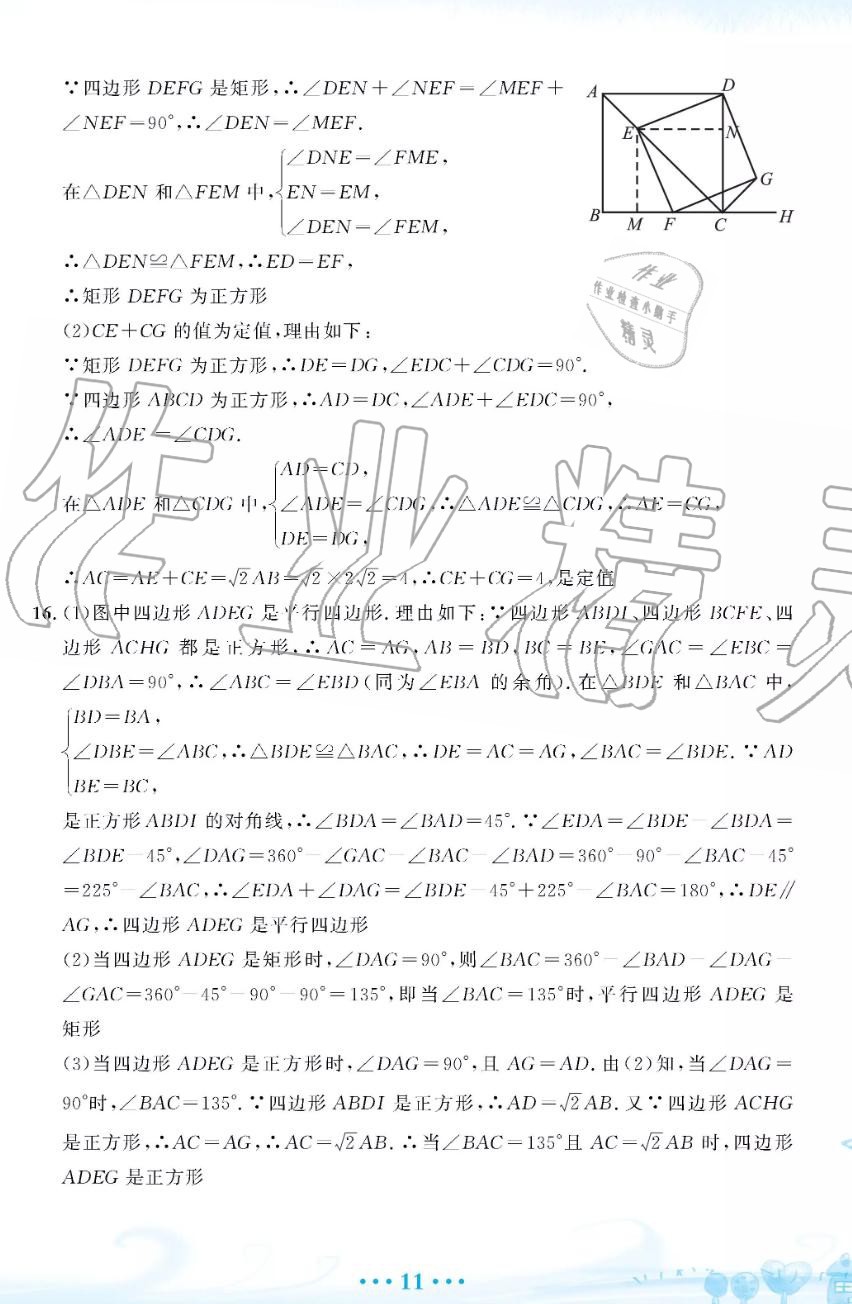 ∵四边形 DEFG 是矩形,∴∠DEN+∠NEF=∠MEF+
∠NEF=90°,∴∠DEN=∠MEF.
∠DNE=∠FME,
在△DEN 和△FEM 中,{EN=EM,
∠DEN=∠FEM,
∴△DEN≌△FEM,∴ED=EF,
∴矩形 DEFG 为正方形
A D
E N
G
B M F C H
作业
作业检查小助手
精灵
(2)CE+CG 的值为定值,理由如下:
∵矩形 DEFG 为正方形,∴DE=DG,∠EDC+∠CDG=90°.
∵四边形 ABCD 为正方形,∴AD=DC,∠ADE+∠EDC=90°,
∴∠ADE=∠CDG.
AD=CD,
在△ADE 和△CDG 中,{∠ADE=∠CDG,∴△ADE≌△CDG,∴AE=CG,
DE=DG,
∴AC=AE+CE=√2AB=√2×2√2=4,∴CE+CG=4,是定值
16.(1)图中四边形 ADEG 是平行四边形.理由如下:∵四边形 ABDI、四边形 BCFE、四
边形 ACHG 都是正方形,∴AC=AG,AB=BD,BC=BE,∠GAC=∠EBC=
∠DBA=90°,∴∠ABC=∠EBD(同为∠EBA 的余角).在△BDE 和△BAC 中,
BD=BA,
{∠DBE=∠ABC,∴△BDE≌△BAC,∴DE=AC=AG,∠BAC=∠BDE.∵AD
BE=BC,
是正方形 ABDI 的对角线,∴∠BDA=∠BAD=45°.∵∠EDA=∠BDE-∠BDA=
∠BDE-45°,∠DAG=360°-∠GAC-∠BAC-∠BAD=360°-90°-∠BAC-45°
=225°-∠BAC,∴∠EDA+∠DAG=∠BDE-45°+225°-∠BAC=180°,∴DE∥
AG,∴四边形 ADEG 是平行四边形
(2)当四边形 ADEG 是矩形时,∠DAG=90°,则∠BAC=360°-∠BAD-∠DAG-
∠GAC=360°-45°-90°-90°=135°,即当∠BAC=135°时,平行四边形 ADEG 是
矩形
(3)当四边形 ADEG 是正方形时,∠DAG=90°,且 AG=AD.由(2)知,当∠DAG=
90°时,∠BAC=135°.∵四边形 ABDI 是正方形,∴AD=√2AB.又∵四边形 ACHG
是正方形,∴AC=AG,∴AC=√2AB.∴当∠BAC=135°且 AC=√2AB 时,四边形
ADEG 是正方形
作业精灵
···11···